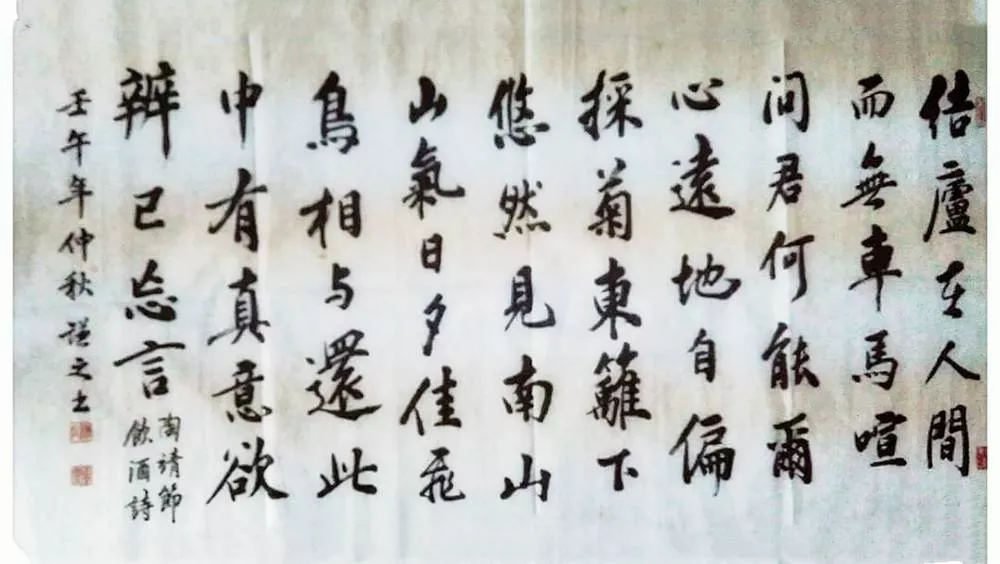 結廬在人間
而無車馬喧
问君何能爾
心遠地自偏
採菊東籬下
悠然見南山
山氣日夕佳飛
鳥相与還此
中有真意欲
辨已忘言
陶靖節
飲酒詩
壬午年仲秋 之书